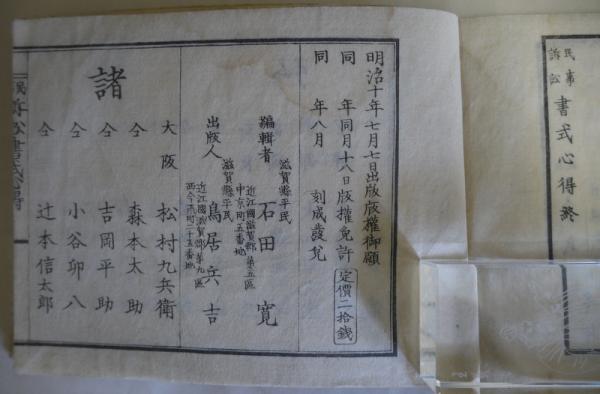 民事
訴訟
書式心得終
明治十年七月七日出版版權御願
同年同月十八日版權免許
同年八月刻成發兌
定價二拾錢
滋賀縣平民
編輯者 石田寛
近江國滋賀郡第五區
中京町五番地
滋賀縣平民
出版人 鳥居兵吉
近江國滋賀郡第九區
諸
大阪 松村九兵衛
仝 森本太助
仝 吉岡平助
仝 小谷卯八
仝 辻本信太郎